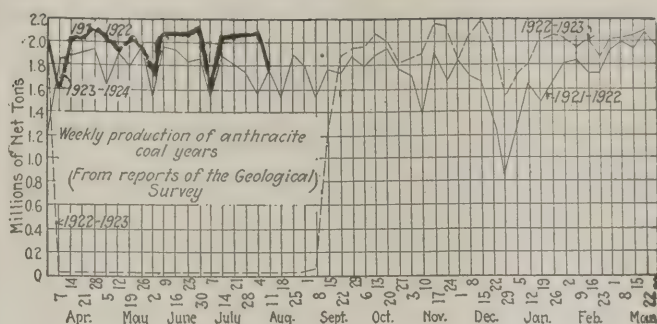 2.2
2.0
1.8
1.6
1.4
1.2
1.0
0.8
0.6
0.4
0.2
0
Millions of Net Tons
1922
1923-1924
1922-1923
1921-1922
Weekly production of anthracite
coal years
(From reports of the Geological)
Survey
1922-1923
7 14 21 28 5 12 19 26 2 9 16 23 30 7 14 21 28 4 11 18 25 1 8 15 22 29 6 13 20 27 3 10 17 24 1 8 15 22 29 5 12 19 26 2 9 16 23 1 8 15 22
Apr. May June July Aug. Sept. Oct. Nov. Dec. Jan. Feb. Mar.